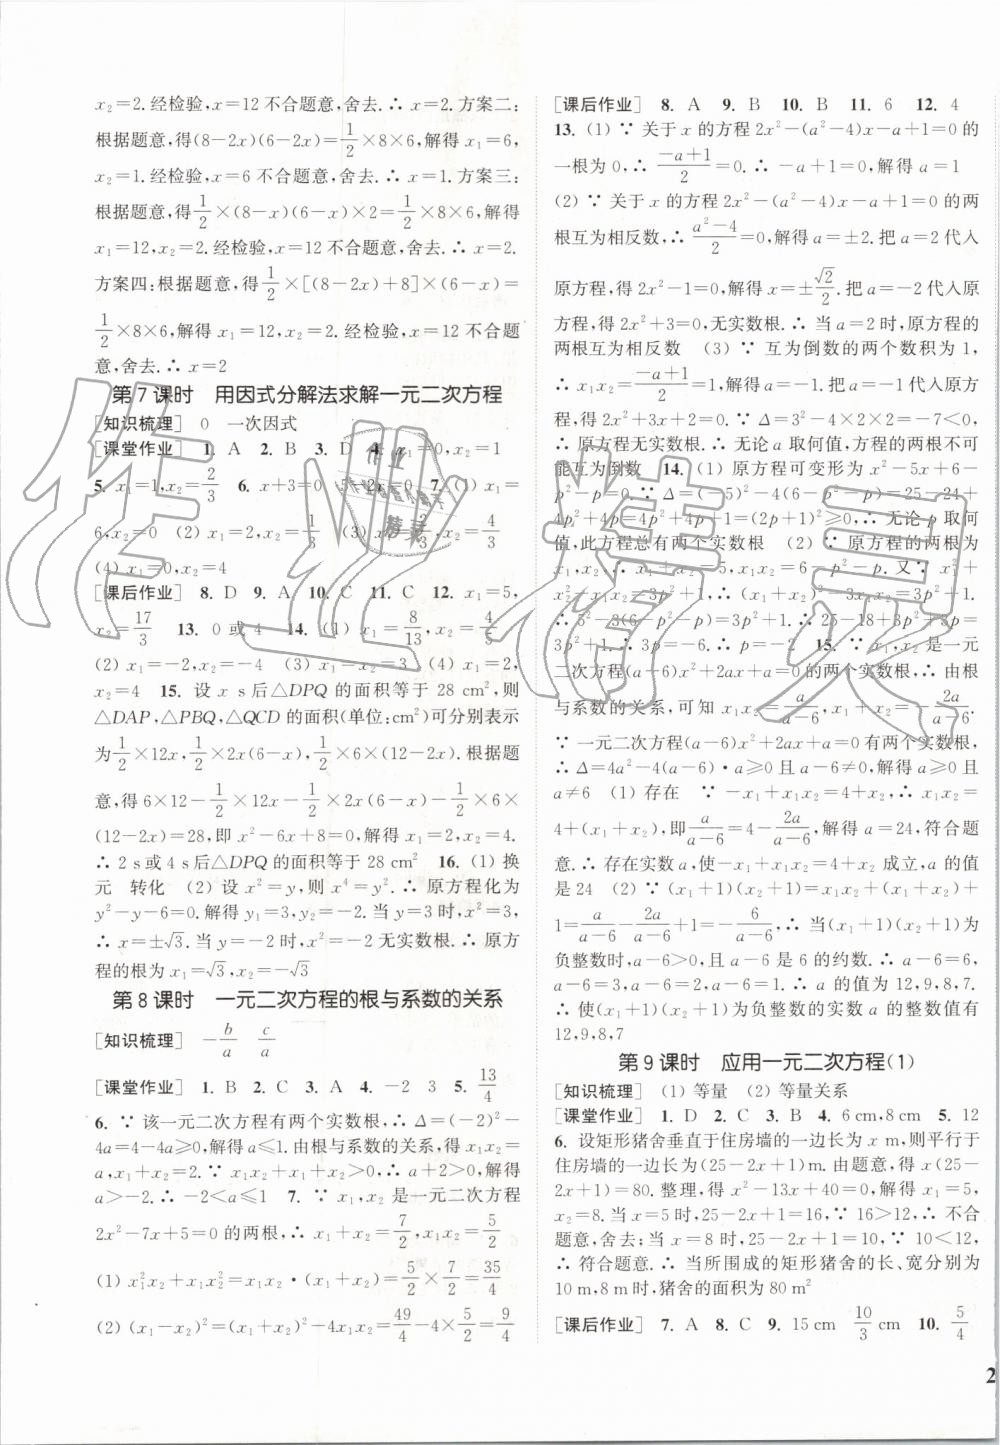 x₂=2.经检验,x=12不合题意,舍去.∴x=2.方案二:
根据题意,得(8-2x)(6-2x)=1/2×8×6,解得x₁=6,
x₂=1.经检验,x=6不合题意,舍去.∴x=1.方案三:
根据题意,得1/2×(8-x)(6-x)×2=1/2×8×6,解得
x₁=12,x₂=2.经检验,x=12不合题意,舍去.∴x=2.
方案四:根据题意,得1/2×[(8-2x)+8]×(6-x)=
1/2×8×6,解得x₁=12,x₂=2.经检验,x=12不合题
意,舍去.∴x=2
第7课时 用因式分解法求解一元二次方程
[知识梳理] 0 一次因式
[课堂作业] 1. A 2. B 3. D 4. x₁=0,x₂=1
5. x₁=1,x₂=2/3 6. x+3=0 5-2x=0 7. (1) x₁=
6,x₂=0 (2) x₁=x₂=1/3 (3) x₁=2/3,x₂=4/3
(4) x₁=0,x₂=4
[课后作业] 8. D 9. A 10. C 11. C 12. x₁=5,
x₂=17/3 13. 0或4 14. (1) x₁=8/13,x₂=4/5
(2) x₁=-2,x₂=4 (3) x₁=x₂=3 (4) x₁=2,
x₂=4 15. 设x s后△DPQ的面积等于28 cm²,则
△DAP,△PBQ,△QCD的面积(单位:cm²)可分别表示
为1/2×12x,1/2×2x(6-x),1/2×6×(12-2x).根据题
意,得6×12-1/2×12x-1/2×2x(6-x)-1/2×6×
(12-2x)=28,即x²-6x+8=0,解得x₁=2,x₂=4.
∴2 s或4 s后△DPQ的面积等于28 cm² 16. (1) 换
元 转化 (2) 设x²=y,则x⁴=y².∴原方程化为
y²-y-6=0.解得y₁=3,y₂=-2.当y=3时,x²=3,
∴x=±√3.当y=-2时,x²=-2无实数根.∴原方
程的根为x₁=√3,x₂=-√3
第8课时 一元二次方程的根与系数的关系
[知识梳理] -b/a c/a
[课堂作业] 1. B 2. C 3. A 4. -2 3 5. 13/4
6. ∵该一元二次方程有两个实数根,∴Δ=(-2)²-
4a=4-4a≥0,解得a≤1.由根与系数的关系,得x₁x₂=
a,x₁+x₂=2.∵x₁x₂+x₁+x₂>0,∴a+2>0.解得
a>-2.∴-2<a≤1 7. ∵x₁,x₂是一元二次方程
2x²-7x+5=0的两根,∴x₁+x₂=7/2,x₁x₂=5/2
(1) x₁²x₂+x₁x₂²=x₁x₂·(x₁+x₂)=5/2×7/2=35/4
(2) (x₁-x₂)²=(x₁+x₂)²-4x₁x₂=49/4-4×5/2=9/4
[课后作业] 8. A 9. B 10. B 11. 6 12. 4
13. (1) ∵关于x的方程2x²-(a²-4)x-a+1=0的
一根为0,∴(-a+1)/2=0.∴-a+1=0,解得a=1
(2) ∵关于x的方程2x²-(a²-4)x-a+1=0的两
根互为相反数,∴(a²-4)/2=0,解得a=±2.把a=2代入
原方程,得2x²-1=0,解得x=±√2/2.把a=-2代入原
方程,得2x²+3=0,无实数根.∴当a=2时,原方程的
两根互为相反数 (3) ∵互为倒数的两个数积为1,
∴x₁x₂=(-a+1)/2=1.解得a=-1.把a=-1代入原方程,
得2x²+3x+2=0.∵Δ=3²-4×2×2=-7<0,
∴原方程无实数根.∴无论a取何值,方程的两根不可
能互为倒数 14. (1) 原方程可变形为x²-5x+6-
p²-p=0.∵Δ=(-5)²-4(6-p²-p)=25-24+
4p²+4p=4p²+4p+1=(2p+1)²≥0,∴无论p取何
值,此方程总有两个实数根 (2) ∵原方程的两根为
x₁,x₂,∴x₁+x₂=5,x₁x₂=6-p²-p.又∵x₁²+
x₂²-x₁x₂=3p²+1,∴(x₁+x₂)²-3x₁x₂=3p²+1.
∴5²-3(6-p²-p)=3p²+1.∴25-18+3p²+3p=
3p²+1.∴3p=-6.∴p=-2 15. ∵x₁,x₂是一元
二次方程(a-6)x²+2ax+a=0的两个实数根,∴由根
与系数的关系,可知x₁x₂=a/(a-6),x₁+x₂=-2a/(a-6).
∵一元二次方程(a-6)x²+2ax+a=0有两个实数根,
∴Δ=4a²-4(a-6)·a≥0且a-6≠0,解得a≥0且
a≠6 (1) 存在 ∵-x₁+x₁x₂=4+x₂,∴x₁x₂=
4+(x₁+x₂),即a/(a-6)=4-2a/(a-6),解得a=24,符合题
意.∴存在实数a,使-x₁+x₁x₂=4+x₂成立,a的值
是24 (2) ∵(x₁+1)(x₂+1)=x₁x₂+(x₁+x₂)+
1=a/(a-6)-2a/(a-6)+1=-6/(a-6),∴当(x₁+1)(x₂+1)为
负整数时,a-6>0,且a-6是6的约数.∴a-6=6,
a-6=3,a-6=2,a-6=1.∴a的值为12,9,8,7.
∴使(x₁+1)(x₂+1)为负整数的实数a的整数值有
12,9,8,7
第9课时 应用一元二次方程(1)
[知识梳理] (1) 等量 (2) 等量关系
[课堂作业] 1. D 2. C 3. B 4. 6 cm,8 cm 5. 12
6. 设矩形猪舍垂直于住房墙的一边长为x m,则平行于
住房墙的一边长为(25-2x+1)m.由题意,得x(25-
2x+1)=80.整理,得x²-13x+40=0,解得x₁=5,
x₂=8.当x=5时,25-2x+1=16,∵16>12,∴不合
题意,舍去;当x=8时,25-2x+1=10,∵10<12,
∴符合题意.∴当所围成的矩形猪舍的长、宽分别为
10 m,8 m时,猪舍的面积为80 m²
[课后作业] 7. A 8. C 9. 15 cm 10/3 cm 10. 5/4
2
作业精灵